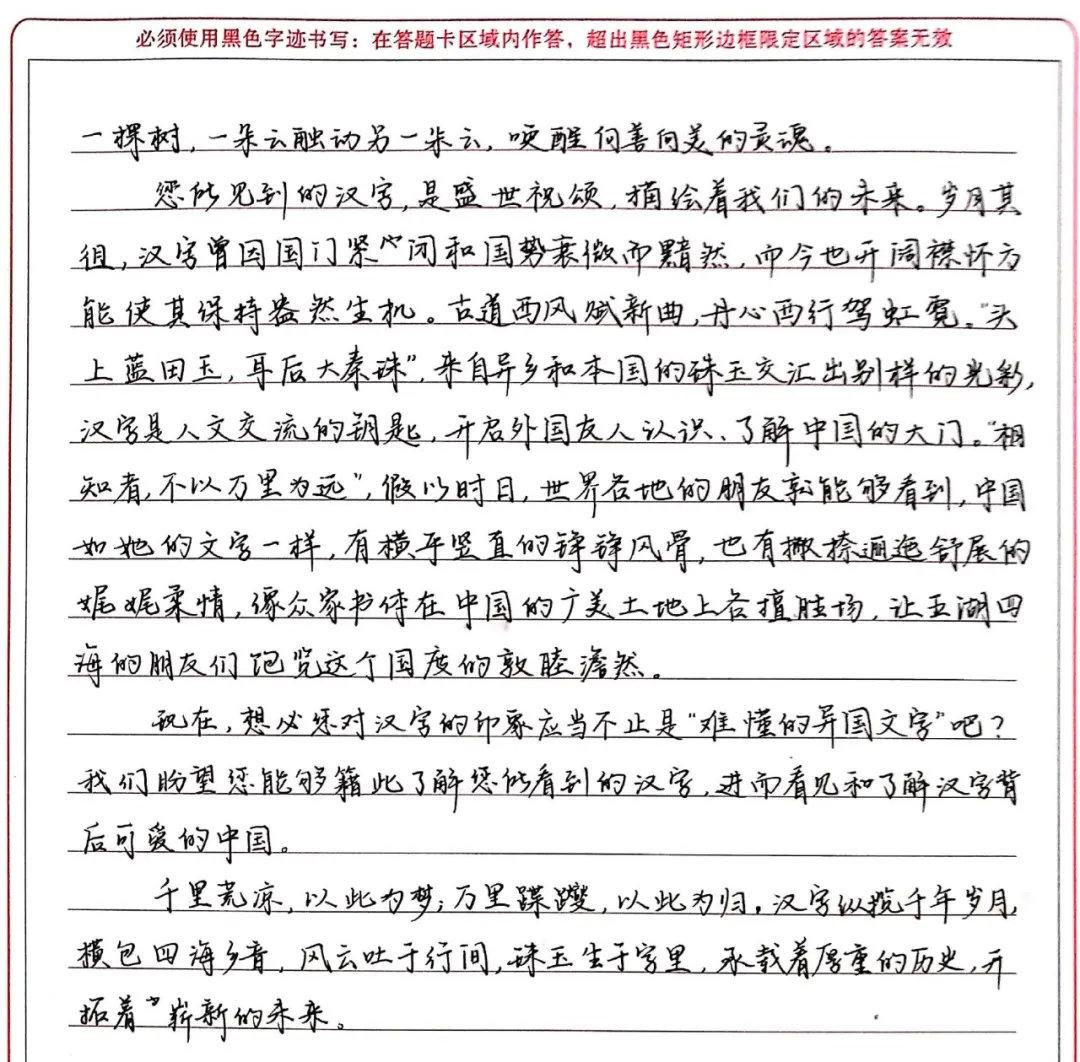 必须使用黑色字迹书写：在答题卡区域内作答，超出黑色矩形边框限定区域的答案无效
一棵树，一朵云触动另一朵云，唤醒向善向美的灵魂。
您所见到的汉字，是盛世祝颂，描绘着我们的未来。岁月其
徂，汉字曾因国门紧闭和国势衰微而黯然，而今也开阔襟怀方
能使其保持盎然生机。古道西风赋新曲，丹心西行驾虹霓。“头
上蓝田玉，耳后大秦珠”，来自异乡和本国的珠玉交汇出别样的光彩，
汉字是人文交流的钥匙，开启外国友人认识、了解中国的大门。“相
知者，不以万里为远”，假以时日，世界各地的朋友就能够看到，中国
如她的文字一样，有横平竖直的铮铮风骨，也有撇捺逦迤舒展的
娓娓柔情，像众家书体在中国的广美土地上各擅胜场，让五湖四
海的朋友们饱览这个国度的敦睦澹然。
现在，想必您对汉字的印象应当不止是“难懂的异国文字”吧？
我们盼望您能够籍此了解您所看到的汉字，进而看见和了解汉字背
后可爱的中国。
千里荒凉，以此为梦；万里蹀躞，以此为归。汉字纵揽千年岁月，
横包四海乡音，风云吐于行间，珠玉生于字里，承载着厚重的历史，开
拓着崭新的未来。